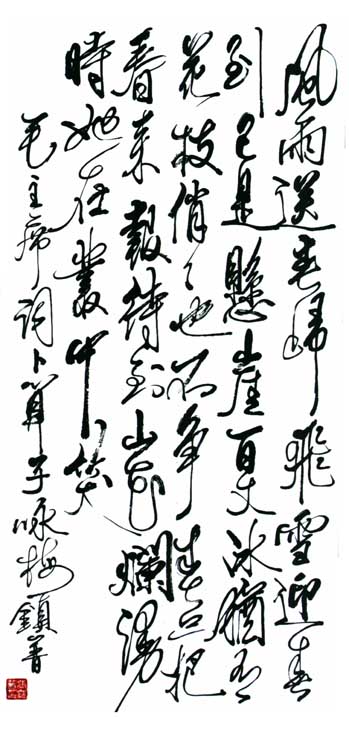 風雨送春歸飛雪迎春
到已是懸崖百丈冰猶有
花枝俏〻也不爭春只把
春來報待到山花爛漫
時她在叢中笑
毛主席詞卜算子咏梅鎮